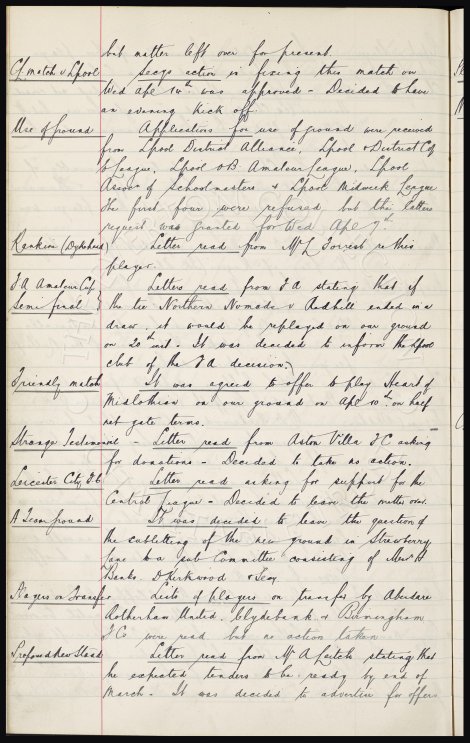 but matter left over for present.
CL match v Lpool Secys action in fixing this match on
Wed Apl 14th was approved - Decided to have
an evening kick off.
Use of Ground Applications for use of ground were received
from Lpool District Alliance, Lpool & District CL
League, Lpool OB Amateur League, Lpool
Assocn of Schoolmasters & Lpool Midweek League
The first four were refused but the latters
request was granted for Wed Apl 7th
Rankin (Dykehead) Letter read from Mr L Forrest re this
player.
FA Amateur Cup Letters read from FA stating that if
Semi final } the tie Northern Nomads v Redhill ended in a
draw it would be replayed on our ground
on 20th inst. It was decided to inform the Lpool
club of the FA decision.
Friendly match It was agreed to offer to play Heart of
Midlothian on our ground on Apl 10th on half
net gate terms.
Strange Testimonial - Letter read from Aston Villa FC asking
for donations - Decided to take no action.
Leicester City FC Letter read asking for support for the
Central League - Decided to leave the matter over.
A Team Ground It was decided to leave the question of
the subletting of the new ground in Strawberry
Lane to a sub Committee consisting of Messrs
Banks, D Kirkwood & Secy
Players on Transfer Lists of players on transfer by Aberdare
Rotherham United, Clydebank & Birmingham
FC were read but no action taken
Proposed New Stand Letter read from Mr A Leitch stating that
he expected tenders to be ready by end of
March - It was decided to advertise for offers